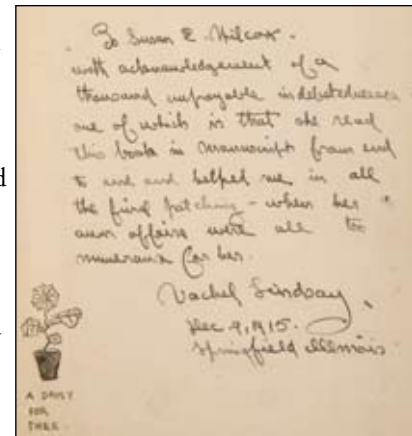 To Susan E. Wilcox.
with acknowledgement of a
thousand unpayable indebtednesses
one of which is that she read
this book in manuscript from end
to end and helped me in all
the final patching - when her
own affairs were all too
numerous for her.
Vachel Lindsay.
Dec 9, 1915.
Springfield Illinois
A DAISY
FOR
THEE